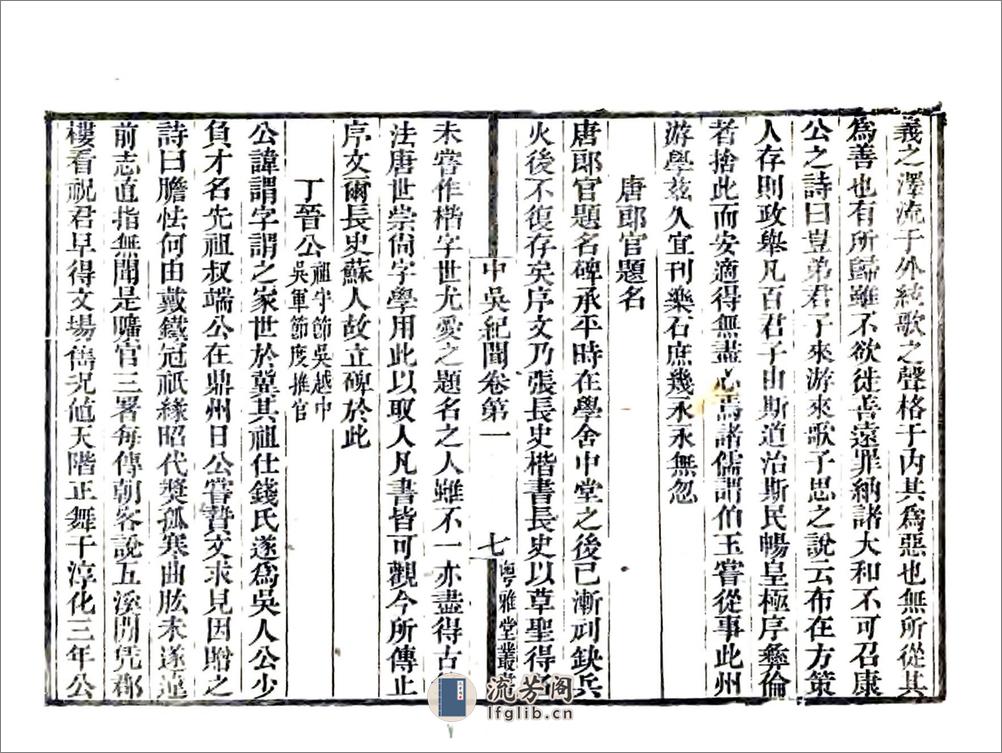 義之澤流于外絃歌之聲格于內其爲惡也無所從其
爲善也有所歸雖不欲徙善遠罪納諸大和不可召康
公之詩曰豈弟君子來游來歌子思之說云布在方策
人存則政舉凡百君子由斯道治斯民暢皇極序彝倫
者捨此而安適得無盡心焉諸儒謂伯玉嘗從事此州
游學玆久宜刊樂石庶幾永永無忽
唐郎官題名
唐郎官題名碑承平時在學舍中堂之後已漸刓缺兵
火後不復存矣序文乃張長史楷書長史以草聖得
中吳紀聞卷第一
七
粵雅堂叢
未嘗作楷字世尤愛之題名之人雖不一亦盡得古
法唐世崇尙字學用此以取人凡書皆可觀今所傳止
序文爾長史蘇人故立碑於此
丁晉公
祖守節吳越中
吳軍節度推官
公諱謂字謂之家世於冀其祖仕錢氏遂爲吳人公少
負才名先祖叔端公在鼎州日公嘗贄文求見因贈之
詩曰膽怯何由戴鐵冠祇緣昭代獎孤寒曲肱未遂
前志直指無聞是曠官三署每傳朝客說五溪閒凭郡
樓看祝君早得文場雋況値天階正舞干淳化三年公
流芳阁
lfglib.cn